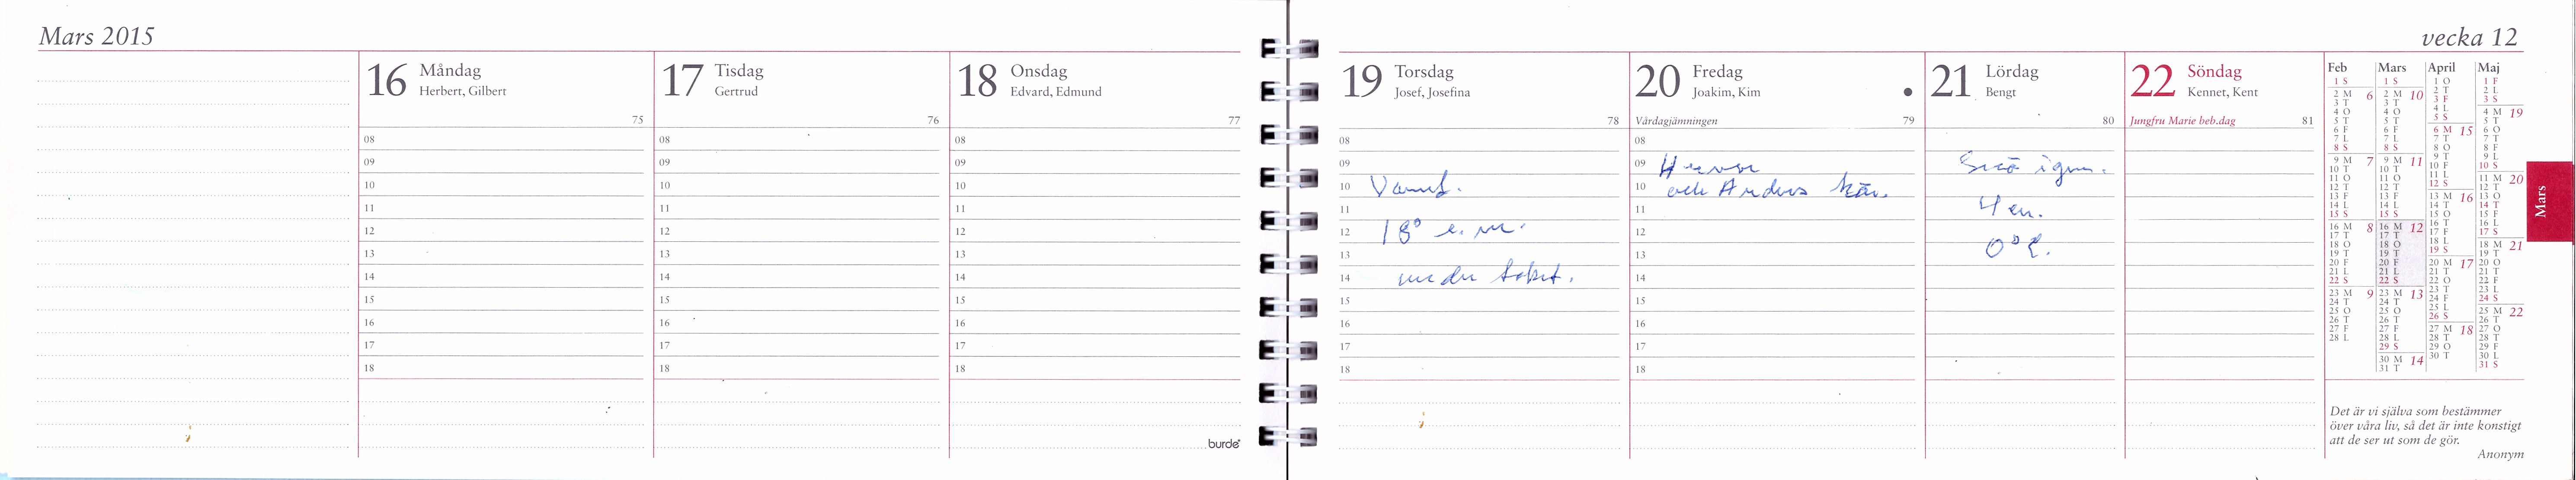 Mars 2015
16 Måndag
Herbert, Gilbert
75
08
09
10
11
12
13
14
15
16
17
18
17 Tisdag
Gertrud
76
08
09
10
11
12
13
14
15
16
17
18
18 Onsdag
Edvard, Edmund
77
08
09
10
11
12
13
14
15
16
17
18
burde
vecka 12
19 Torsdag
Josef, Josefina
78
08
09
10 Varmt.
11
12 18° e.m.
13
14 under taket.
15
16
17
18
20 Fredag
Joakim, Kim
Vårdagjämningen 79
08
09
10 och Anders här.
11
12
13
14
15
16
17
18
21 Lördag
Bengt
80
Snö igen.
4 cm.
0°C.
22 Söndag
Kennet, Kent
Jungfru Marie beb.dag 81
Feb
1 S
2 M 6
3 T
4 O
5 T
6 F
7 L
8 S
9 M 7
10 T
11 O
12 T
13 F
14 L
15 S
16 M 8
17 T
18 O
19 T
20 F
21 L
22 S
23 M 9
24 T
25 O
26 T
27 F
28 L
Mars
1 S
2 M 10
3 T
4 O
5 T
6 F
7 L
8 S
9 M 11
10 T
11 O
12 T
13 F
14 L
15 S
16 M 12
17 T
18 O
19 T
20 F
21 L
22 S
23 M 13
24 T
25 O
26 T
27 F
28 L
29 S
30 M 14
31 T
April
1 O
2 T
3 F
4 L
5 S
6 M 15
7 T
8 O
9 T
10 F
11 L
12 S
13 M 16
14 T
15 O
16 T
17 F
18 L
19 S
20 M 17
21 T
22 O
23 T
24 F
25 L
26 S
27 M 18
28 T
29 O
30 T
Maj
1 F
2 L
3 S
4 M 19
5 T
6 O
7 T
8 F
9 L
10 S
11 M 20
12 T
13 O
14 T
15 F
16 L
17 S
18 M 21
19 T
20 O
21 T
22 F
23 L
24 S
25 M 22
26 T
27 O
28 T
29 F
30 L
31 S
Mars
Det är vi själva som bestämmer
över våra liv, så det är inte konstigt
att de ser ut som de gör.
Anonym